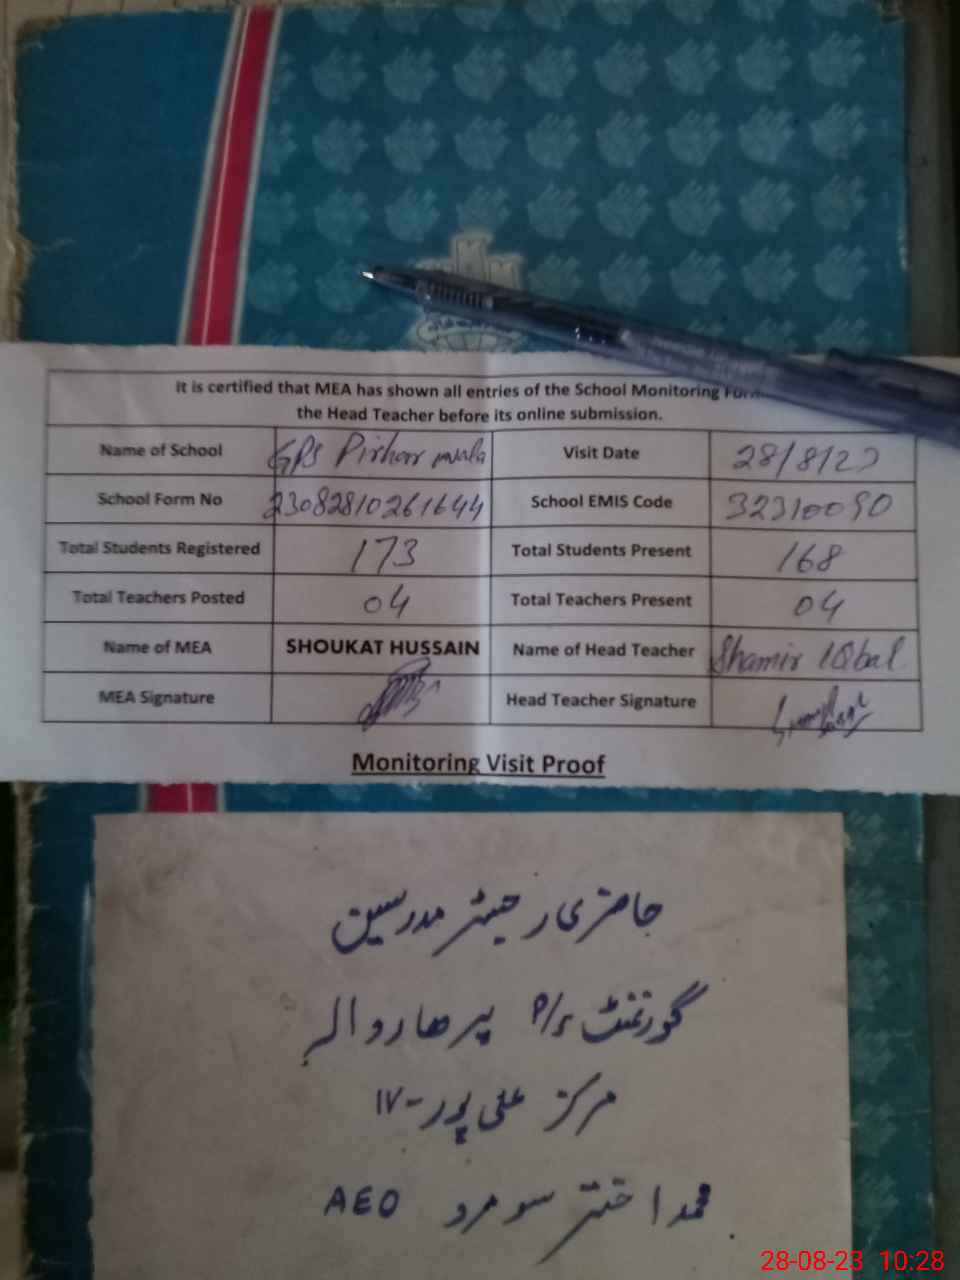 It is certified that MEA has shown all entries of the School Monitoring Form
the Head Teacher before its online submission.
Name of School GPS Pirhar wala Visit Date 28/8/23
School Form No 23082810261644 School EMIS Code 32310090
Total Students Registered 173 Total Students Present 168
Total Teachers Posted 04 Total Teachers Present 04
Name of MEA SHOUKAT HUSSAIN Name of Head Teacher Shamir IQbal
MEA Signature Head Teacher Signature
Monitoring Visit Proof
حاضری رجسٹر مدرسین
گورنمنٹ P/S پرھاروالہ
مرکز علی پور-IV
محمد اختر سومرو AEO
28-08-23 10:28